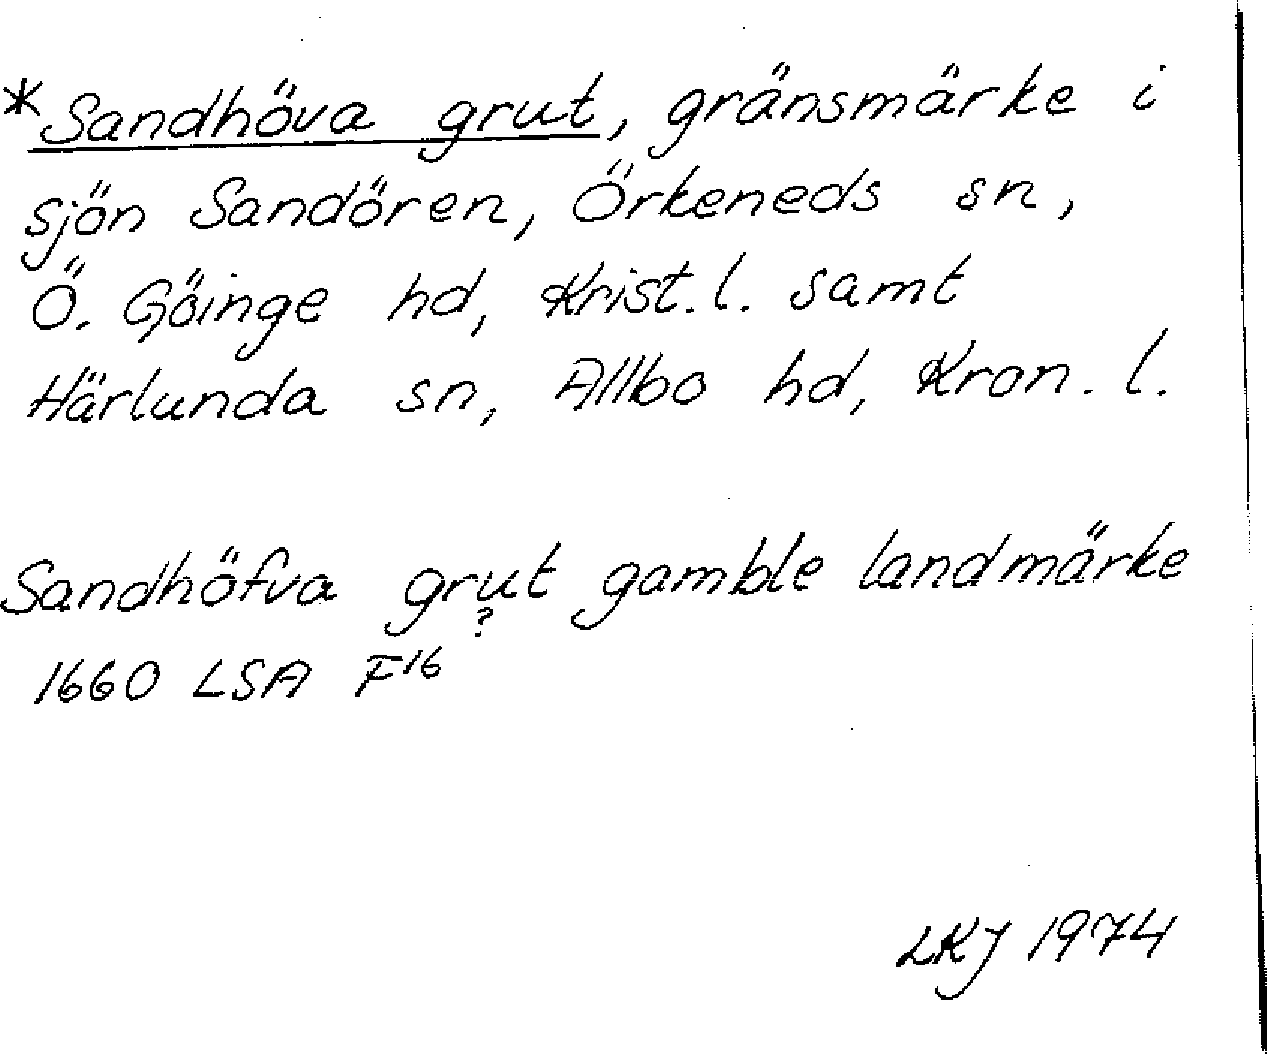 *Sandhöva grut, gränsmärke i
sjön Sandören, Örkeneds sn,
Ö. Göinge hd, Krist. l. samt
Härlunda sn, Allbo hd, Kron. l.
Sandhöfva grut gamble landmärke
?
1660 LSA F16
LKJ 1974